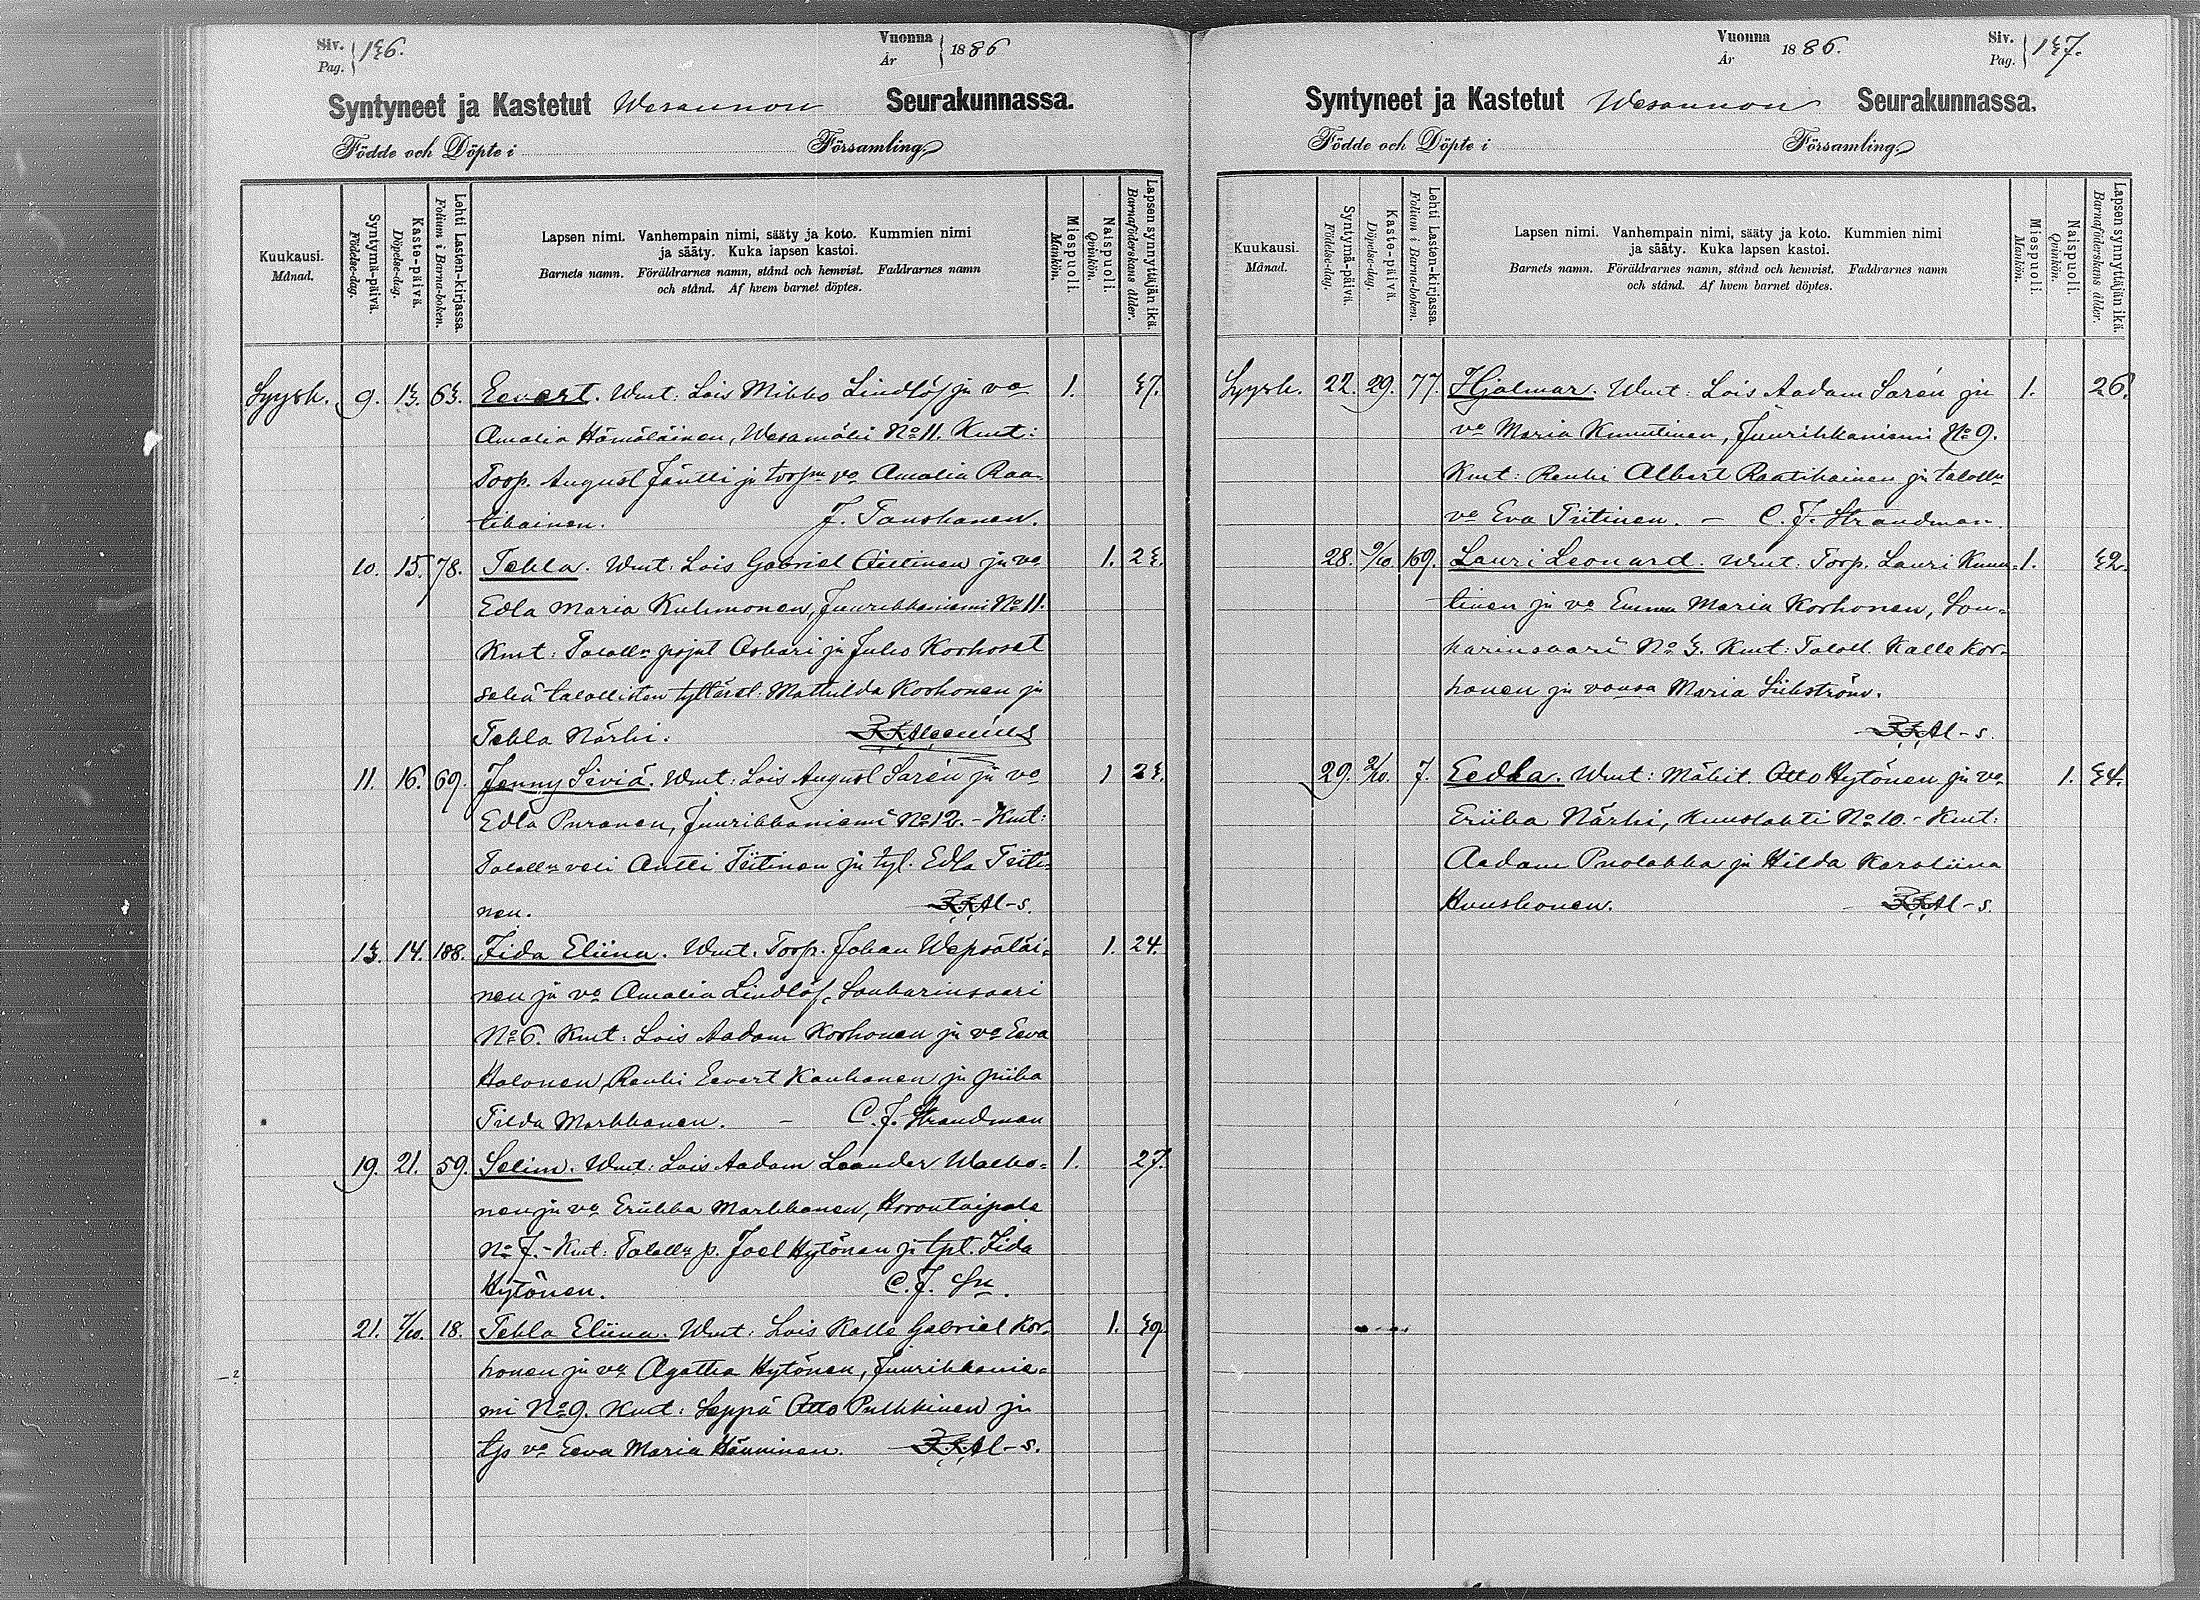 Siv. Pag. 136.
Vuonna År 1886
Syntyneet ja Kastetut Wesannon Seurakunnassa.
Födde och Döpte i Församling.
Kuukausi. Månad.
Syntymä-päivä. Födelse-dag.
Kaste-päivä. Döpelse-dag.
Lehti Lasten-kirjassa. Folium i Barna-boken.
Lapsen nimi. Vanhempain nimi, sääty ja koto. Kummien nimi
ja sääty. Kuka lapsen kastoi.
Barnets namn. Föräldrarnes namn, stånd och hemvist. Faddrarnes namn
och stånd. Af hvem barnet döptes.
Miespuoli. Mankön.
Naispuoli. Qvinkön.
Lapsen synnyttäjän ikä. Barnaföderskans ålder.
Syysk. 9. 13. 63. Eevert. Wmt: Lois Mikko Lindlöf ja vo 1. 37.
Amalia Hämäläinen, Wesamäki No 11. Kmt:
Torp. August Jäntti ja torpn vo Amalia Raa-
tikainen. J. Tanskanen.
10. 15. 78. Tekla. Wmt: Lois Gabriel Tiitinen ja vo 1. 23.
Edla Maria Kuhmonen, Juurikkaniemi No 11.
Kmt: Talolln pojat Oskari ja Juho Korhoset
sekä talollisten tyttäret: Mathilda Korhonen ja
Tekla Närhi.
11. 16. 69. Jenny Siviä. Wmt: Lois August Sarén ja vo 1 23.
Edla Puranen, Juurikkaniemi No 12. - Kmt:
Talolln veli Antti Tiitinen ja tyt. Edla Tiiti-
nen. Al-s.
13. 14. 188. Iida Eliina. Wmt. Torp. Johan Wepsäläi- 1. 24.
nen ja vo Amalia Lindlöf, Soukarinsaari
No 6. Kmt: Lois Aadam Korhonen ja vo Eeva
Halonen, Renki Eevert Kauhanen ja piika
Tilda Markkanen. - C. J. Strandman
19. 21. 59. Selim. Wmt: Lois Aadam Leander Walko- 1. 27.
nen ja vo Eriikka Markkanen, Horontaipale
No 7. - Kmt: Talolln p. Joel Hytönen ja tyt. Iida
Hytönen. C. J. Sn.
21. 7/10. 18. Tekla Eliina. Wmt: Lois Kalle Gabriel Kor- 1. 39
honen ja vo Agatha Hytönen, Juurikkanie-
mi No 9. Kmt: Seppä Otto Pulkkinen ja
tjs vo Eeva Maria Hänninen. Al-s.
Vuonna År 1886.
Siv. Pag. 137.
Syntyneet ja Kastetut Wesannon Seurakunnassa.
Födde och Döpte i Församling.
Kuukausi. Månad.
Syntymä-päivä. Födelse-dag.
Kaste-päivä. Döpelse-dag.
Lehti Lasten-kirjassa. Folium i Barna-boken.
Lapsen nimi. Vanhempain nimi, sääty ja koto. Kummien nimi
ja sääty. Kuka lapsen kastoi.
Barnets namn. Föräldrarnes namn, stånd och hemvist. Faddrarnes namn
och stånd. Af hvem barnet döptes.
Miespuoli. Mankön.
Naispuoli. Qvinkön.
Lapsen synnyttäjän ikä. Barnaföderskans ålder.
Syysk. 22. 29. 77. Hjalmar. Wmt: Lois Aadam Sarén ja 1. 26.
vo Maria Knuutinen, Juurikkaniemi No 9.
Kmt: Renki Albert Raatikainen ja talolln
vo Eva Tiitinen. - C. J. Strandman.
28. 9/10 169. Lauri Leonard. Wmt: Torp. Lauri Knuu- 1. 32.
tinen ja vo Emma Maria Korhonen, Sou-
karinsaari No 3. Kmt: Taloll. Kalle Kor-
honen ja vaimo Maria Liikström.
Al-s.
29. 2/10. 7. Eedla. Wmt: Mäkit. Otto Hytönen ja vo 1. 34.
Eriika Närhi, Kuuslahti No 10. - Kmt:
Aadam Puolakka ja Hilda Karoliina
Huuskonen. Al-s.